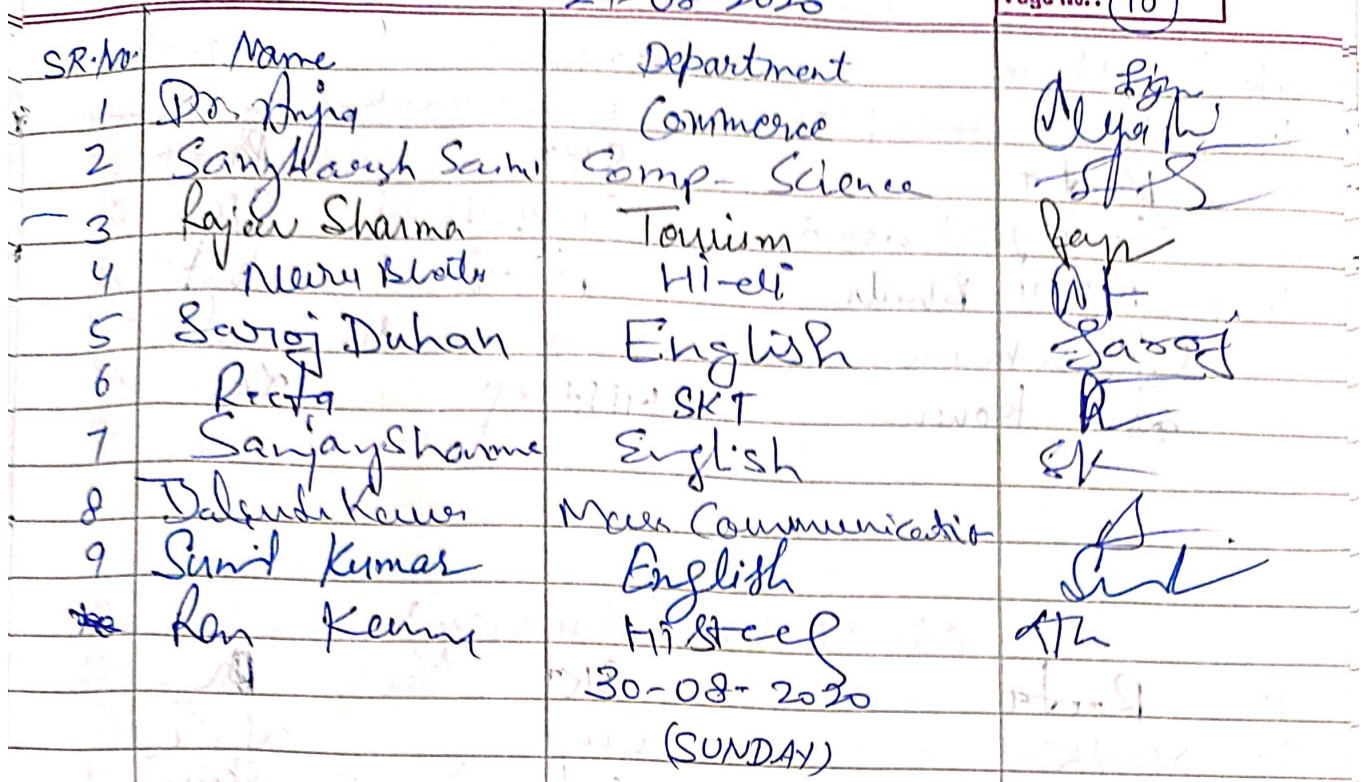 -08-2020 Page No.: 10
SR.No. Name Department Sign
1 Dr. Anjna Commerce
2 Sangharsh Saini Comp- Science
3 Rajeev Sharma Tourism
4 Neeru Hi-di
5 Saroj Duhan English Saroj
6 Reeta SKT
7 Sanjay Sharma English SK
8 Kaur Mass Communication
9 Sunil Kumar English
Ran
30-08-2020
(SUNDAY)